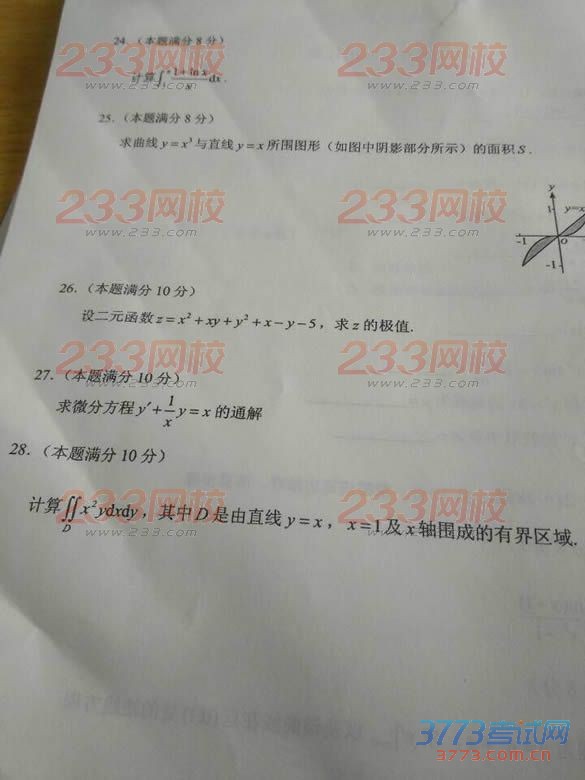 24.（本题满分 8 分）
计算∫₁ᵉ (1+ln x)/x dx.
25.（本题满分 8 分）
求曲线 y=x³与直线 y=x 所围图形（如图中阴影部分所示）的面积 S.
y
1
y=x
-1
O
-1
26.（本题满分 10 分）
设二元函数 z=x²+xy+y²+x-y-5，求 z 的极值.
27.（本题满分 10 分）
求微分方程 y′+1/x y=x 的通解
28.（本题满分 10 分）
计算∬_D x²ydxdy，其中 D 是由直线 y=x，x=1 及 x 轴围成的有界区域.
233网校
www.233.com
233网校
www.233.com
233网校
www.233.com
233网校
www.233.com
233网校
www.233.com
233网校
www.233.com
233网校
www.233.com
233网校
www.233.com
3773考试网
3773.com.cn